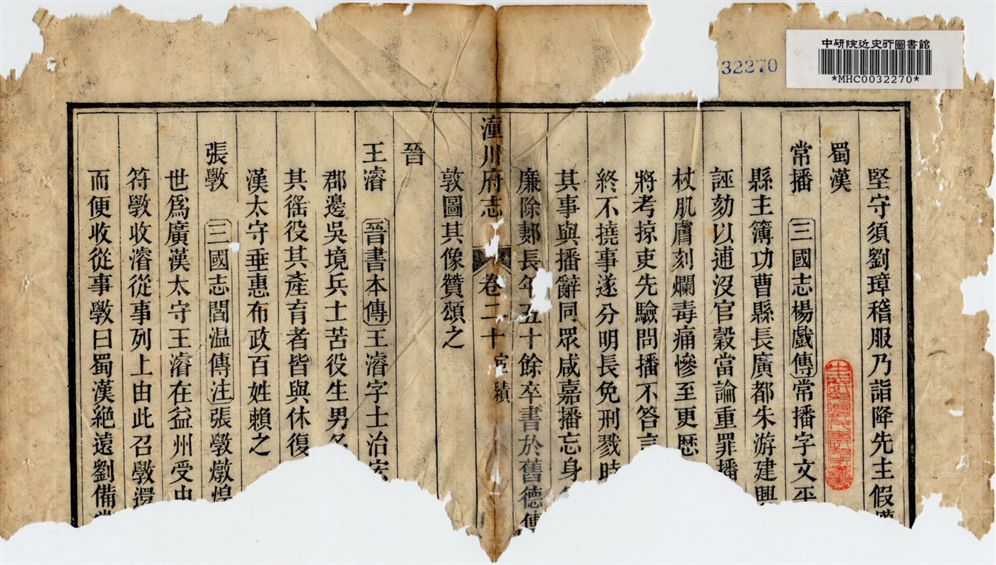 中研院近史所圖書館
*MHC0032270*
32270
堅守須劉璋稽服乃詣降先主假
蜀漢
常播 三國志楊戲傳常播字文平
縣主簿功曹縣長廣都朱游建興
誣劾以逋沒官穀當論重罪播
杖肌膚刻爛毒痛慘至更歷
將考掠吏先驗問播不答言
終不撓事遂分明長免刑戮時
其事與播辭同眾咸嘉播忘身
廉除郪長年五十餘卒書於舊德傳
潼川府志 卷二十 宦績
敦圖其像贊頌之
晉
王濬 晉書本傳王濬字士治
郡邊吳境兵士苦役生男多
其徭役其產育者皆與休復
漢太守垂惠布政百姓賴之
張斆 三國志閻溫傳注張斆燉煌
世爲廣漢太守王濬在益州受中
符斆收濬從事列上由此召斆還
而便收從事斆曰蜀漢絕遠劉備